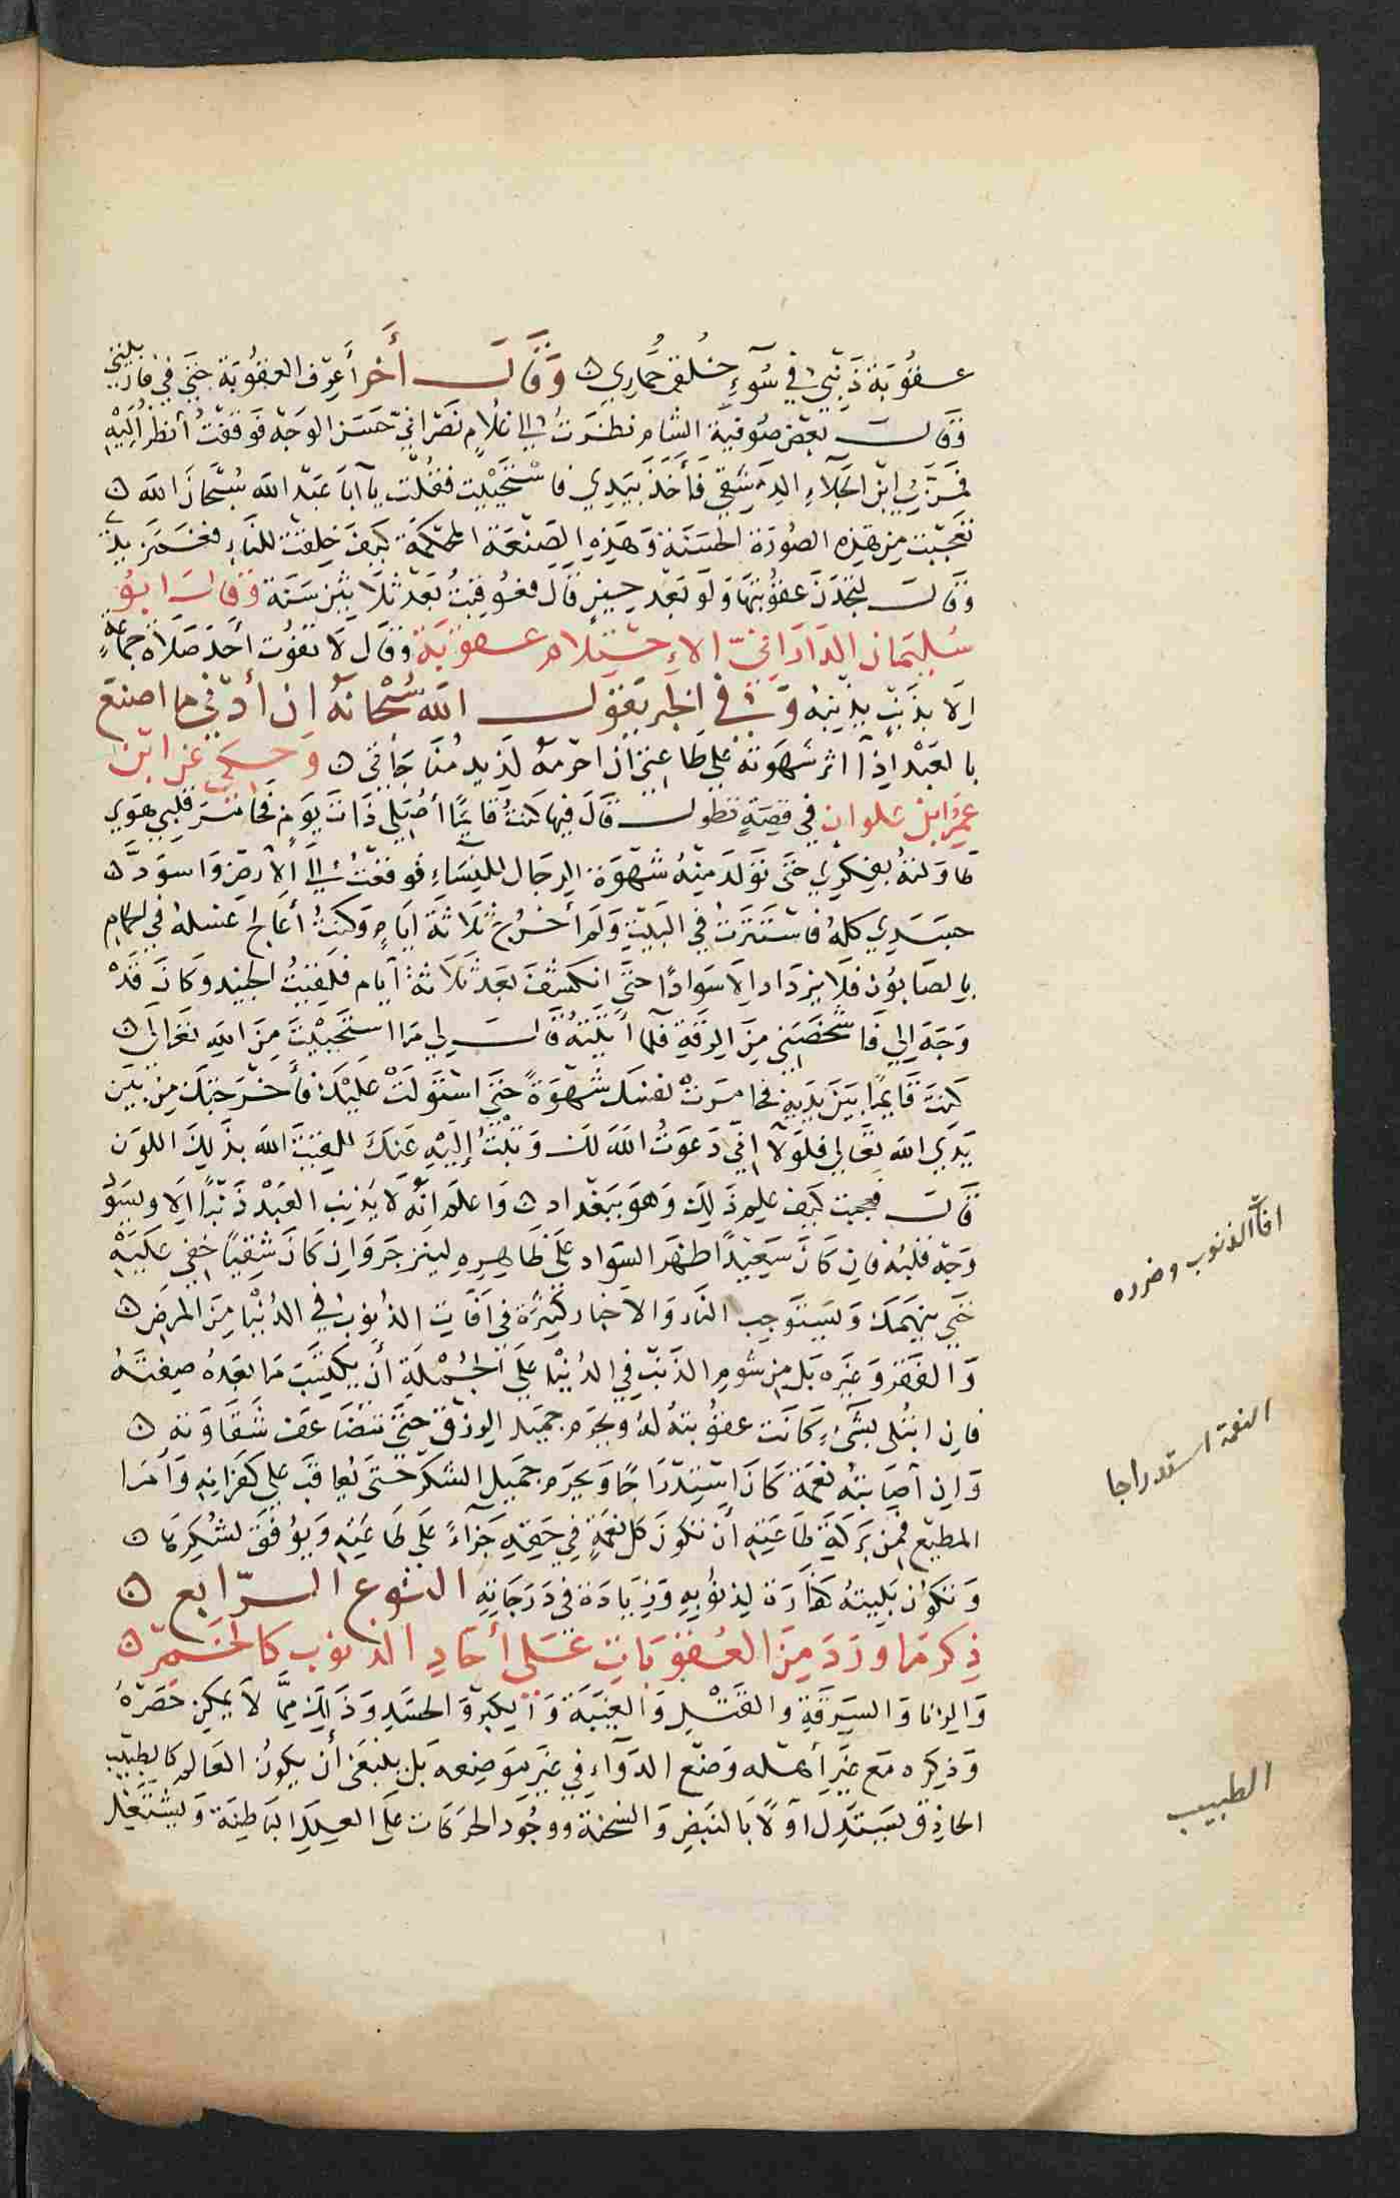 عقوبة ذنبي في سوء خلق حماري وقال أخر أعرف العقوبة حتى في فار بيتي
وقال بعض صوفية الشام نظرت الى غلام نصراني حسن الوجه فوقفت أنظر إليه
فمر بي ابن الجلاء الدمشقي فأخذ بيدي فاستحييت فقلت يا أبا عبد الله سبحان الله
تعجبت من هذه الصورة الحسنة وهذه الصنعة المحكمة كيف خلقت للنار فغمز يدي
وقال لتجدن عقوبتها ولو بعد حين قال فعوقبت بعد ثلاثين سنة وقال ابو
سليمان الداراني الاحتلام عقوبة وقال لا تفوت أحد صلاة جماعة
إلا بذنب يذنبه وفي الخبر يقول الله سبحانه ان أدنى ما اصنع
بالعبد إذا اثر شهوته على طاعتي أن احرمه لذيذ مناجاتي وحكي عن ابن
عمر ابن علوان في قصة تطول قال فيها كنت قايما أصلي ذات يوم فخامر قلبي هوى
طاولته بفكري حتى تولد منه شهوة الرجال للنساء فوقعت الى الأرض واسود
جسدي كله فاستترت في البيت ولم أخرج ثلاثة ايام وكنت أعالج غسله في الحمام
بالصابون فلا يزداد الا سوادا حتى انكشف بعد ثلاثة أيام فلقيت الجنيد وكان قد
وجه إلي فاشخصني من الرقة فلما أتيته قال لي ما استحييت من الله تعالى
كنت قايما بين يديه فخامرت نفسك شهوة حتى استولت عليك فأخرجتك من بين
يدي الله تعالى فلولا اني دعوت الله لك وتبت إليه عنك للقيت الله بذلك اللون
قال فعجبت كيف علم ذلك وهو ببغداد واعلم انه لا يذنب العبد ذنبا إلا ويسود
وجه قلبه فان كان سعيدا اظهر السواد على ظاهره لينزجر وان كان شقيا اخفي عليه
حتى ينهمك ويستوجب النار والاخبار كثيرة في آفات الذنوب في الدنيا من المرض
والفقر وغيره بل من شوم الذنب في الدنيا على الجملة أن يكتسب ما بعده صفته
فان ابتلى بشيء كانت عقوبته له ويحرم جميل الرزق حتى يتضاعف شقاوته
وان أصابته نعمة كان استدراجا ويحرم جميل الشكر حتى يعاقب على كفرانه وأما
المطيع فمن بركة طاعته أن تكون كل نعمة في حقه جزاء على طاعته ويوفق لشكرها
وتكون بليته كفارة لذنوبه وزيادة في درجاته النوع الرابع
ذكر ما ورد من العقوبات على أحاد الذنوب كالخمر
والزنا والسرقة والقتل والغيبة والكبر والحسد وذلك مما لا يمكن حصره
وذكره مع غير أهله وضع الدواء في غير موضعه بل ينبغي أن يكون العالم كالطبيب
الحاذق يستدل أولا بالنبض والسحنة ووجود الحركات على العلل الباطنة ويشتغل
افات الذنوب وضرره
النعمة استدراجا
الطبيب